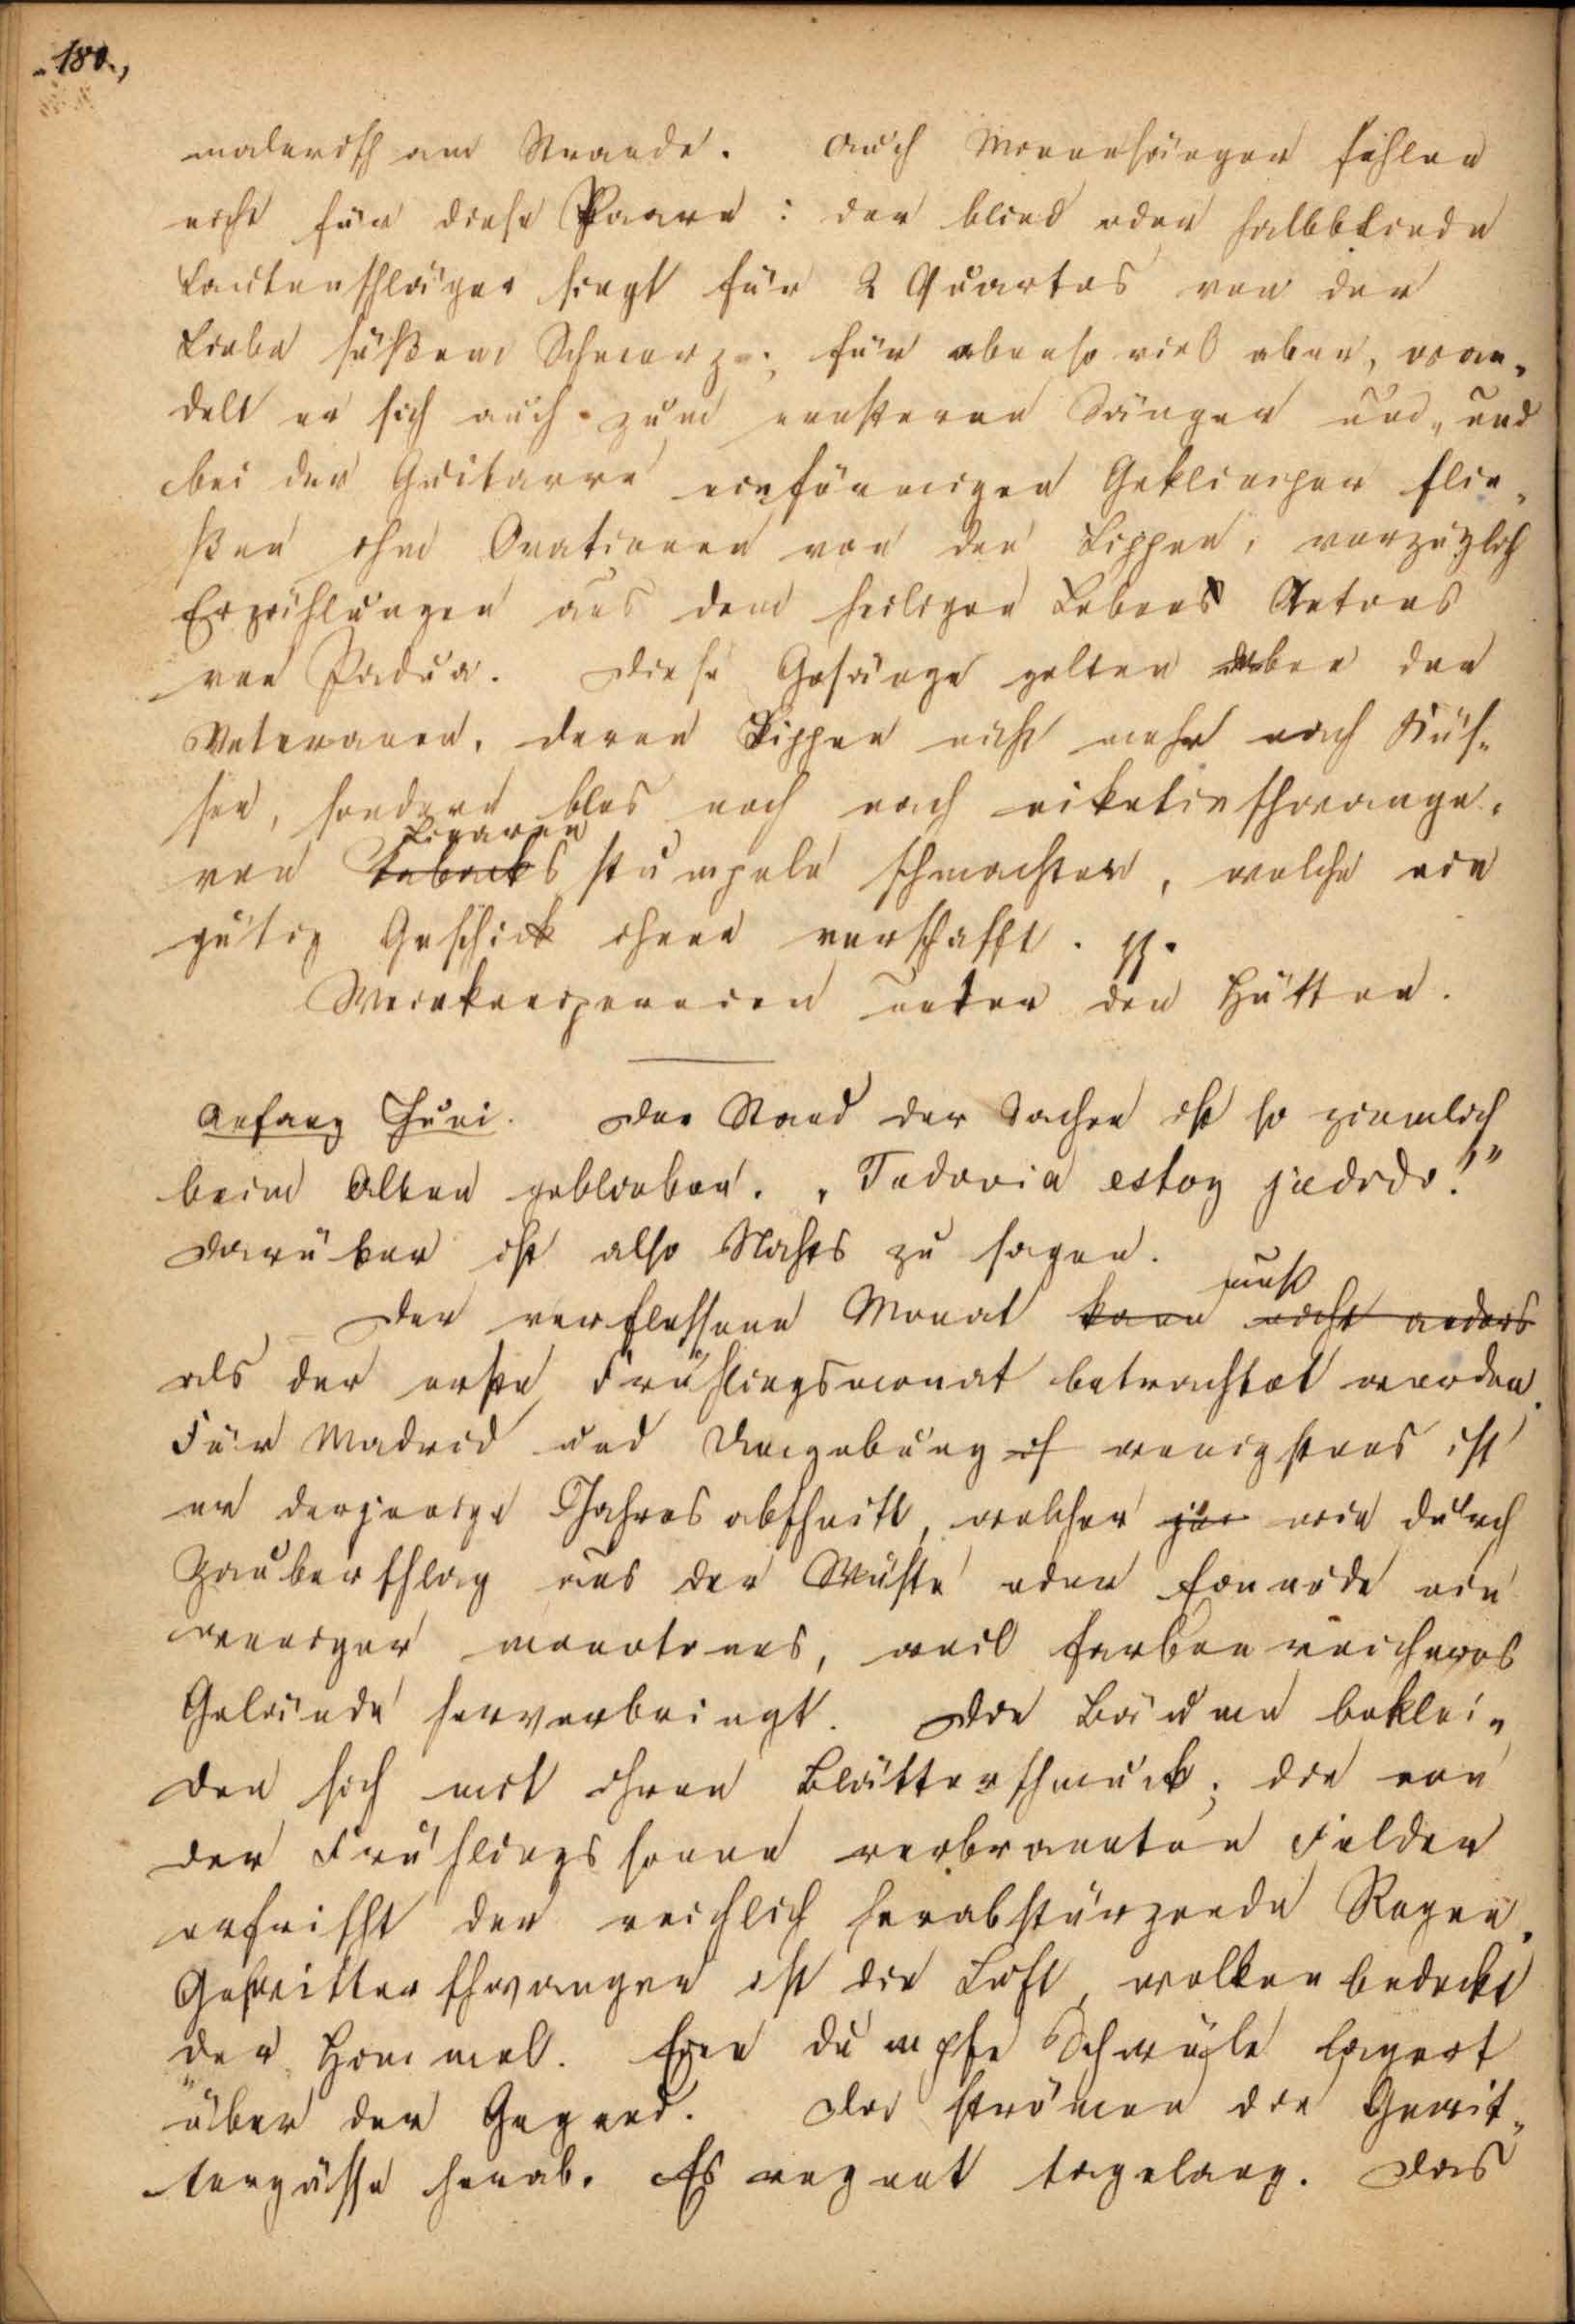 180.,
malerisch am Strande. Auch Minnesänger fehlen
nicht für diese Paare: der blind oder halbblinde
Lautenschläger singt für 2 Quartos von der
Liebe süßem Schmerz; für ebenso viel aber, wan„
delt er sich auch zum ernsteren Sänger um, und
bei der Guitarre einförmigen Geklimper flie„
ßen ihm Orationen von den Lippen, vorzüglich
Erzählungen aus dem heiligen Lebens Antons
von Padua. Diese Gesänge gelten aber den
Veteranen, deren Lippen nicht mehr nach Küs„
sen, sondern blos noch nach nikotinschwange„
Cigarren
ren Tabacks stumpeln schmachten, welche ein
gütig Geschick ihnen verschafft.
Weinkneipereien unter den Hütten.
Anfang Juni. Der Stand der Sachen ist so ziemlich
beim Alten geblieben. „Todovia estoy jodido!“
Darüber ist also Nichts zu sagen.
muß
Der verflossene Monat kann nicht anders
als der erste Frühlingsmonat betrachtet werden.
Für Madrid und Umgebung is wenigstens ist
er derjenige Jahresabschnitt, welcher wie durch
Zauberschlag aus der Wüste oder Einöde ein
weniger monotones, weil farbenreicheres
Gelände hervorbringt. Die Bäume beklei„
den sich mit ihren Blätterschmuck; die von
der Frühlingssonne verbrannten Felder
erfrischt der reichlich herabstürzende Regen.
Gewitterschwanger ist die Luft, wolkenbedeckt
der Himmel. Eine dumpfe Schwüle lagert
über der Gegend. Da strömen die Gewit„
tergüsse herab. Es regnet tagelang. Das